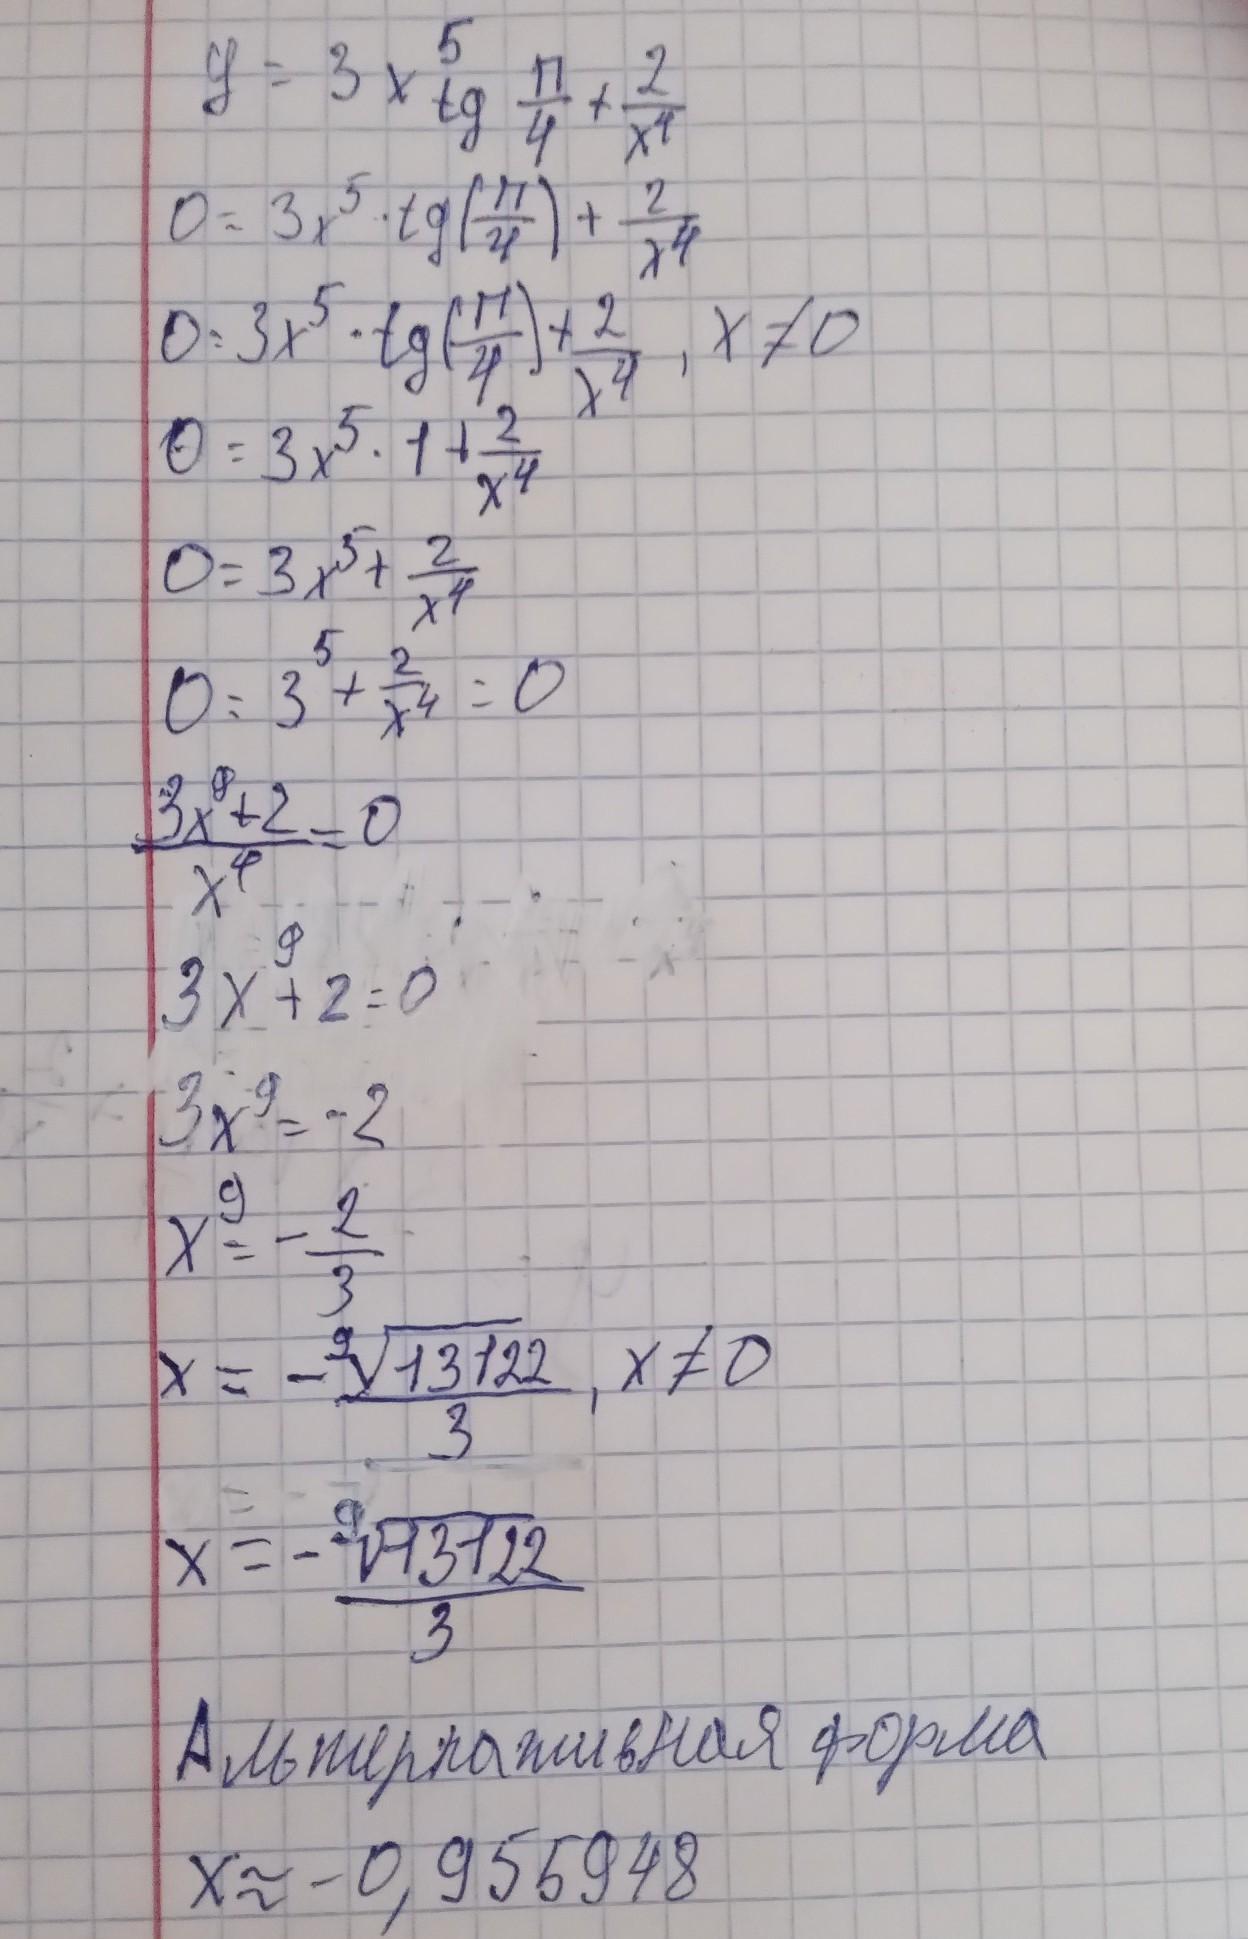 y = 3x⁵ tg π/4 + 2/x⁴
0 = 3x⁵ · tg(π/4) + 2/x⁴
0 = 3x⁵ · tg(π/4) + 2/x⁴, x ≠ 0
0 = 3x⁵ · 1 + 2/x⁴
0 = 3x⁵ + 2/x⁴
0 = 3⁵ + 2/x⁴ = 0
(3x⁹+2)/x⁴ = 0
3x⁹ + 2 = 0
3x⁹ = -2
x⁹ = -2/3
x = -⁹√13122/3, x ≠ 0
x = -⁹√13122/3
Альтернативная форма
x ≈ -0,955948